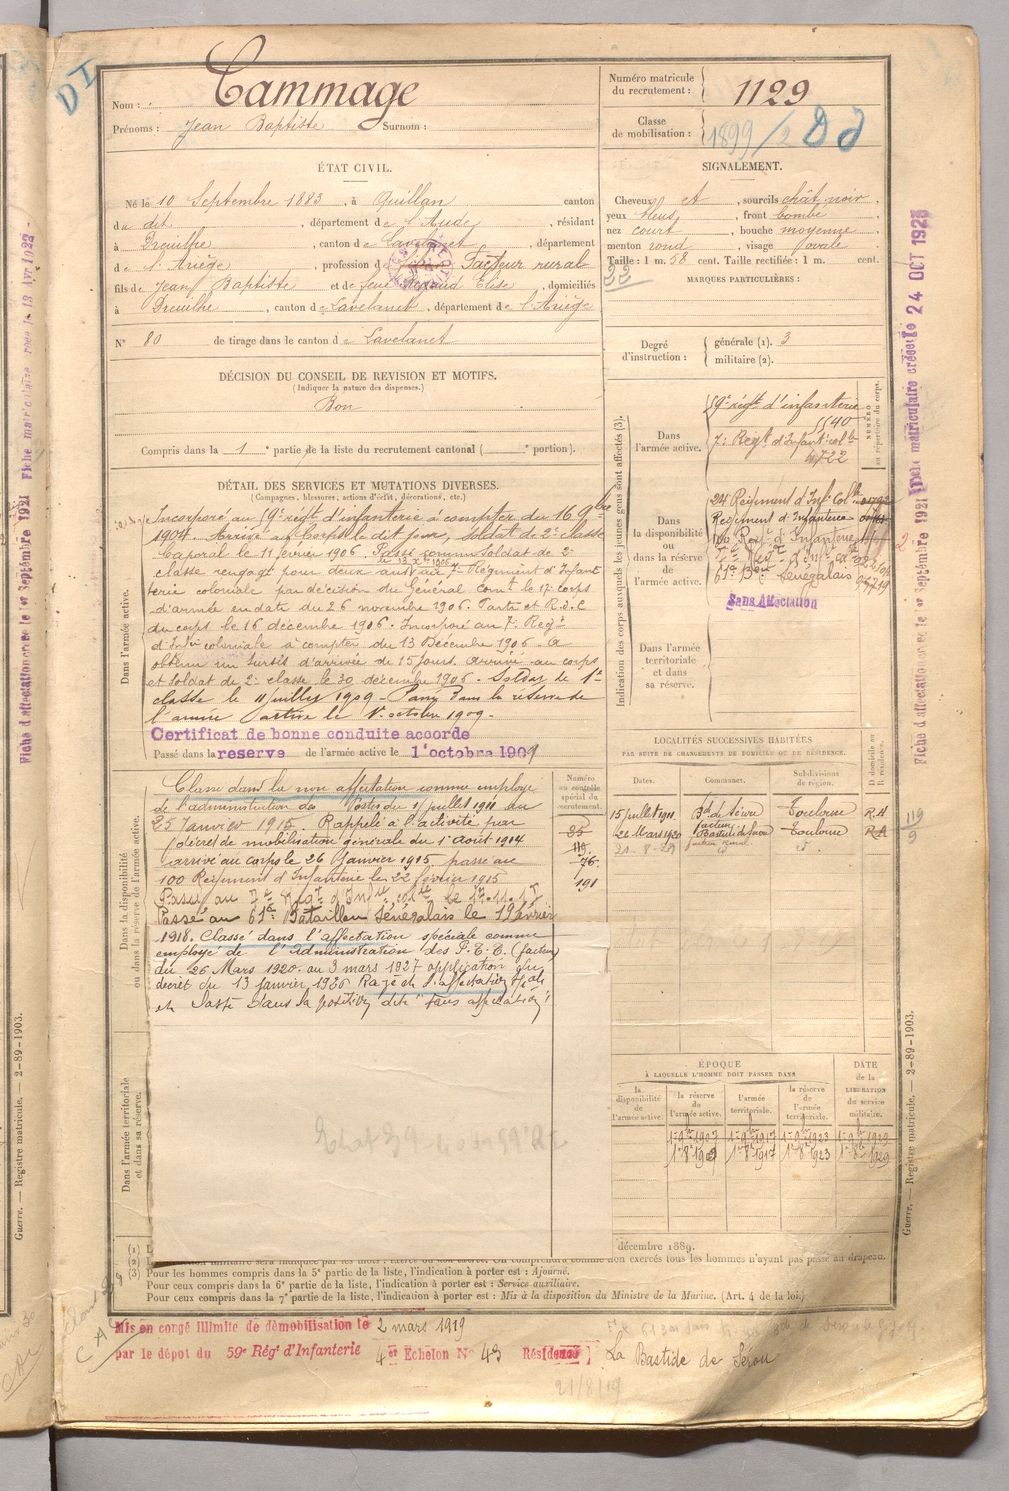 Nom : Cammage
Prénoms : Jean Baptiste Surnom :
Numéro matricule du recrutement : 1129
Classe de mobilisation : 1899/2
ÉTAT CIVIL.
Né le 10 Septembre 1883, à Quillan canton
du dit, département de l'Aude, résidant
à Dreuilhe, canton de Lavelanet, département
de l'Ariège, profession de Facteur rural
fils de Jean Baptiste et de feue Elise, domiciliés
à Dreuilhe, canton de Lavelanet, département de l'Ariège
N° 80 de tirage dans le canton de Lavelanet
SIGNALEMENT.
Cheveux et, sourcils chât. noir,
yeux bleus, front bombé
nez court, bouche moyenne
menton rond, visage ovale
Taille : 1 m. 58 cent. Taille rectifiée : 1 m. cent.
22
MARQUES PARTICULIÈRES :
Degré d'instruction : générale (1). 3
militaire (2).
DÉCISION DU CONSEIL DE REVISION ET MOTIFS.
(Indiquer la nature des dispenses.)
Bon
Compris dans la 1e partie de la liste du recrutement cantonal ( e portion).
DÉTAIL DES SERVICES ET MUTATIONS DIVERSES.
(Campagnes, blessures, actions d'éclat, décorations, etc.)
Dans l'armée active.
Incorporé au 59e régt d'infanterie à compter du 16 9bre
1904. Arrivé au Corps le dit jour, Soldat de 2e classe
Caporal le 11 février 1906. Passé comme Soldat de 2e
classe rengagé pour deux ans au 7e Régiment d'Infan
terie coloniale par décision du Général Comt le 17e Corps
d'armée en date du 26 novembre 1906.
du corps le 16 décembre 1906. Incorporé au 7e Régt
d'Infrie coloniale à compter du 13 Décembre 1906. A
obtenu un sursis d'arrivée de 15 jours. Arrivé au corps
et soldat de 2e classe le 30 décembre 1906. Soldat de 1re
classe le 11 juillet 1909. Passé dans la réserve de
l'armée active le 1er octobre 1909.
Certificat de bonne conduite accordé
Passé dans la réserve de l'armée active le 1er octobre 1909
Dans la disponibilité ou dans la réserve de l'armée active.
Classé dans la non affectation comme employé
de l'administration des Postes du 15 juillet 1911 au
25 Janvier 1915. Rappelé à l'activité par
décret de mobilisation générale du 1er Août 1914
arrivé au corps le 26 Janvier 1915 passé au
100 Régiment d'Infanterie le 22 février 1915
Passé au 7e Régt d'Inftie colle
Passé au 61e Bataillon Sénégalais le 1 Janvier
1918. Classé dans l'affectation spéciale comme
employé de l'Administration des P.T.T. (facteur)
du 26 Mars 1920 au 3 mars 1927 application du
décret du 13 janvier 1926 Rayé de l'affectation sple
et Passé dans la position dite "sans affectation"
Numéro au contrôle spécial du recrutement.
25
119.
76.
191
Dans l'armée territoriale et dans sa réserve.
Indication des corps auxquels les jeunes gens sont affectés (3).
NUMÉRO au répertoire du corps.
Dans l'armée active.
59e régt d'infanterie
5540
7e Régt d'Infant. colle
4722
Dans la disponibilité ou dans la réserve de l'armée active.
24 Régiment d'Inf. Colle
Régiment d'Infanterie
100 Régt d'Infanterie
7e Régt d'Inf. cole
61e Bon Sénégalais
Sans Affectation
Dans l'armée territoriale et dans sa réserve.
LOCALITÉS SUCCESSIVES HABITÉES
PAR SUITE DE CHANGEMENTS DE DOMICILE OU DE RÉSIDENCE.
Dates. Communes. Subdivisions de région. D. domicile ou R. résidence.
15 juillet 1911. Bde de Sérou Toulouse R.
facteur
26 Mars 1920 Bastide de Sérou Toulouse R
21-8-29 facteur rural
119
9
ÉPOQUE
À LAQUELLE L'HOMME DOIT PASSER DANS
la disponibilité de l'armée active. la réserve de l'armée active. l'armée territoriale. la réserve de l'armée territoriale. DATE de la LIBÉRATION du service militaire.
1er 9bre 1907 1er 9bre 1917 1er 9bre 1923 1er 9bre 1929
1er 8bre 1909 1er 8bre 1917 1er 8bre 1923 1er 8bre 1929
décembre 1889.
(3) Pour les hommes compris dans la 5e partie de la liste, l'indication à porter est : Ajourné.
Pour ceux compris dans la 6e partie de la liste, l'indication à porter est : Service auxiliaire.
Pour ceux compris dans la 7e partie de la liste, l'indication à porter est : Mis à la disposition du Ministre de la Marine. (Art. 4 de la loi.)
Mis en congé illimité de démobilisation le 2 mars 1919
par le dépôt du 59e Régt d'Infanterie 4er Echelon N° 43 Résidence La Bastide de Sérou
21/8/19
Guerre. — Registre matricule. — 2-89-1903.
Guerre. — Registre matricule. — 2-89-1903.
Fiche matriculaire créée le 24 OCT 1925
Fiche d'affectation créée le 1er Septembre 1921
Fiche d'affectation créée le 1er Septembre 1921